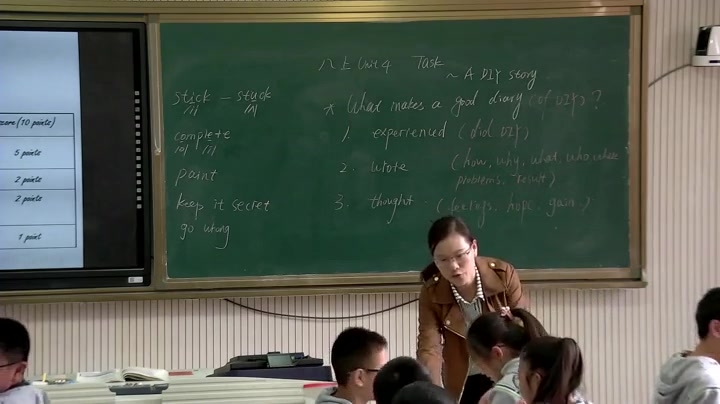 core (10 points)
5 points
2 points
2 points
1 point
八上 Unit 4 Task
~ A DIY story
stick — stuck
complete
paint
keep it secret
go wrong
* What makes a good diary (of DIY)?
1. experienced (did DIY)
2. wrote (how, why, what, who, where
problems, result)
3. thought (feelings, hope, gain)